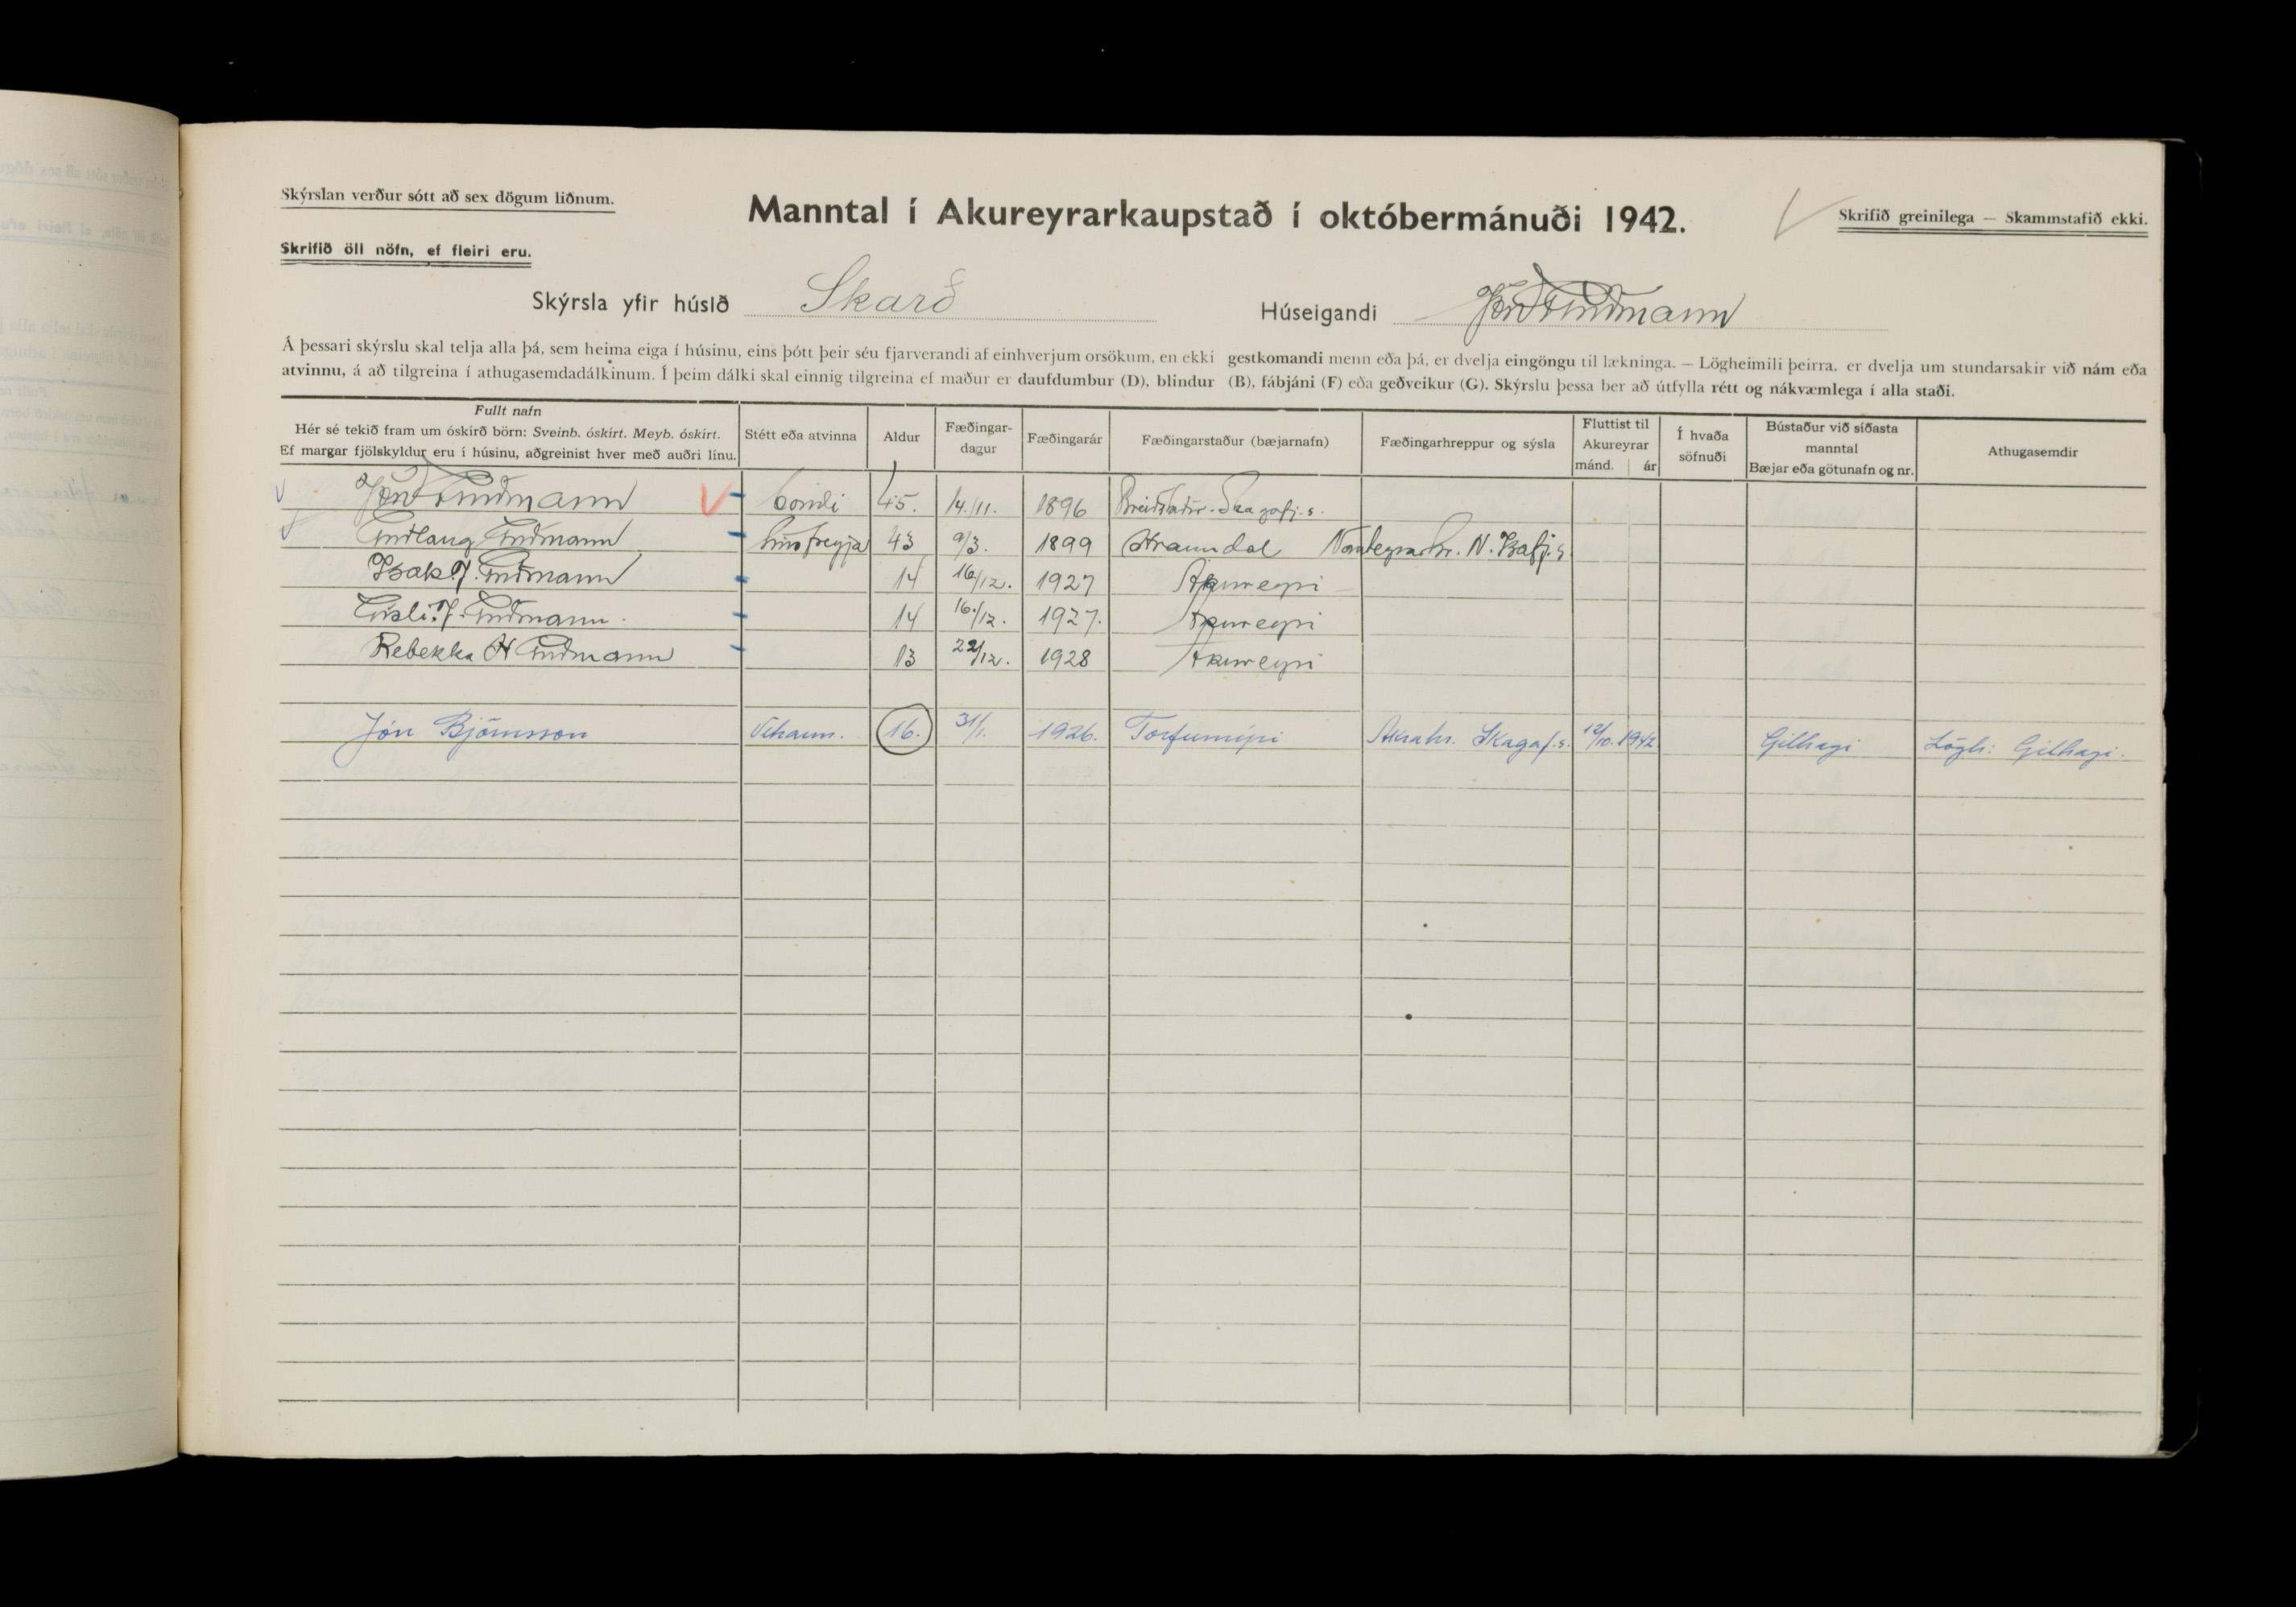 Skýrslan verður sótt að sex dögum liðnum.
Manntal í Akureyrarkaupstað í októbermánuði 1942.
Skrifið greinilega — Skammstafið ekki.
Skrifið öll nöfn, ef fleiri eru.
Skýrsla yfir húsið Skarð Húseigandi Jón Guðmann
Á þessari skýrslu skal telja alla þá, sem heima eiga í húsinu, eins þótt þeir séu fjarverandi af einhverjum orsökum, en ekki gestkomandi menn eða þá, er dvelja eingöngu til lækninga. — Lögheimili þeirra, er dvelja um stundarsakir við nám eða
atvinnu, á að tilgreina í athugasemdadálkinum. Í þeim dálki skal einnig tilgreina ef maður er daufdumbur (D), blindur (B), fábjáni (F) eða geðveikur (G). Skýrslu þessa ber að útfylla rétt og nákvæmlega í alla staði.
Fullt nafn
Hér sé tekið fram um óskírð börn: Sveinb. óskírt. Meyb. óskírt.
Ef margar fjölskyldur eru í húsinu, aðgreinist hver með auðri línu.
Stétt eða atvinna
Aldur
Fæðingar-
dagur
Fæðingarár
Fæðingarstaður (bæjarnafn)
Fæðingarhreppur og sýsla
Fluttist til
Akureyrar
mánd. ár
Í hvaða
söfnuði
Bústaður við síðasta
manntal
Bæjar eða götunafn og nr.
Athugasemdir
Jón Guðmann bóndi 45. 14./11. 1896 Skagafj.s.
Guðlaug Guðmann húsfreyja 43 9/3. 1899 Hraundal Nauteyrarhr. N. Ísafj.s
Ísak J. Guðmann 14 16/12. 1927 Akureyri
Gísli J. Guðmann. 14 16./12. 1927. Akureyri
Rebekka H Guðmann 13 22/12. 1928 Akureyri
Jón Björnsson Vikam. 16. 31/1. 1926. Torfumýri Akrahr. Skagaf.s. 12/10. 1942 Gilhagi Lögh: Gilhagi.